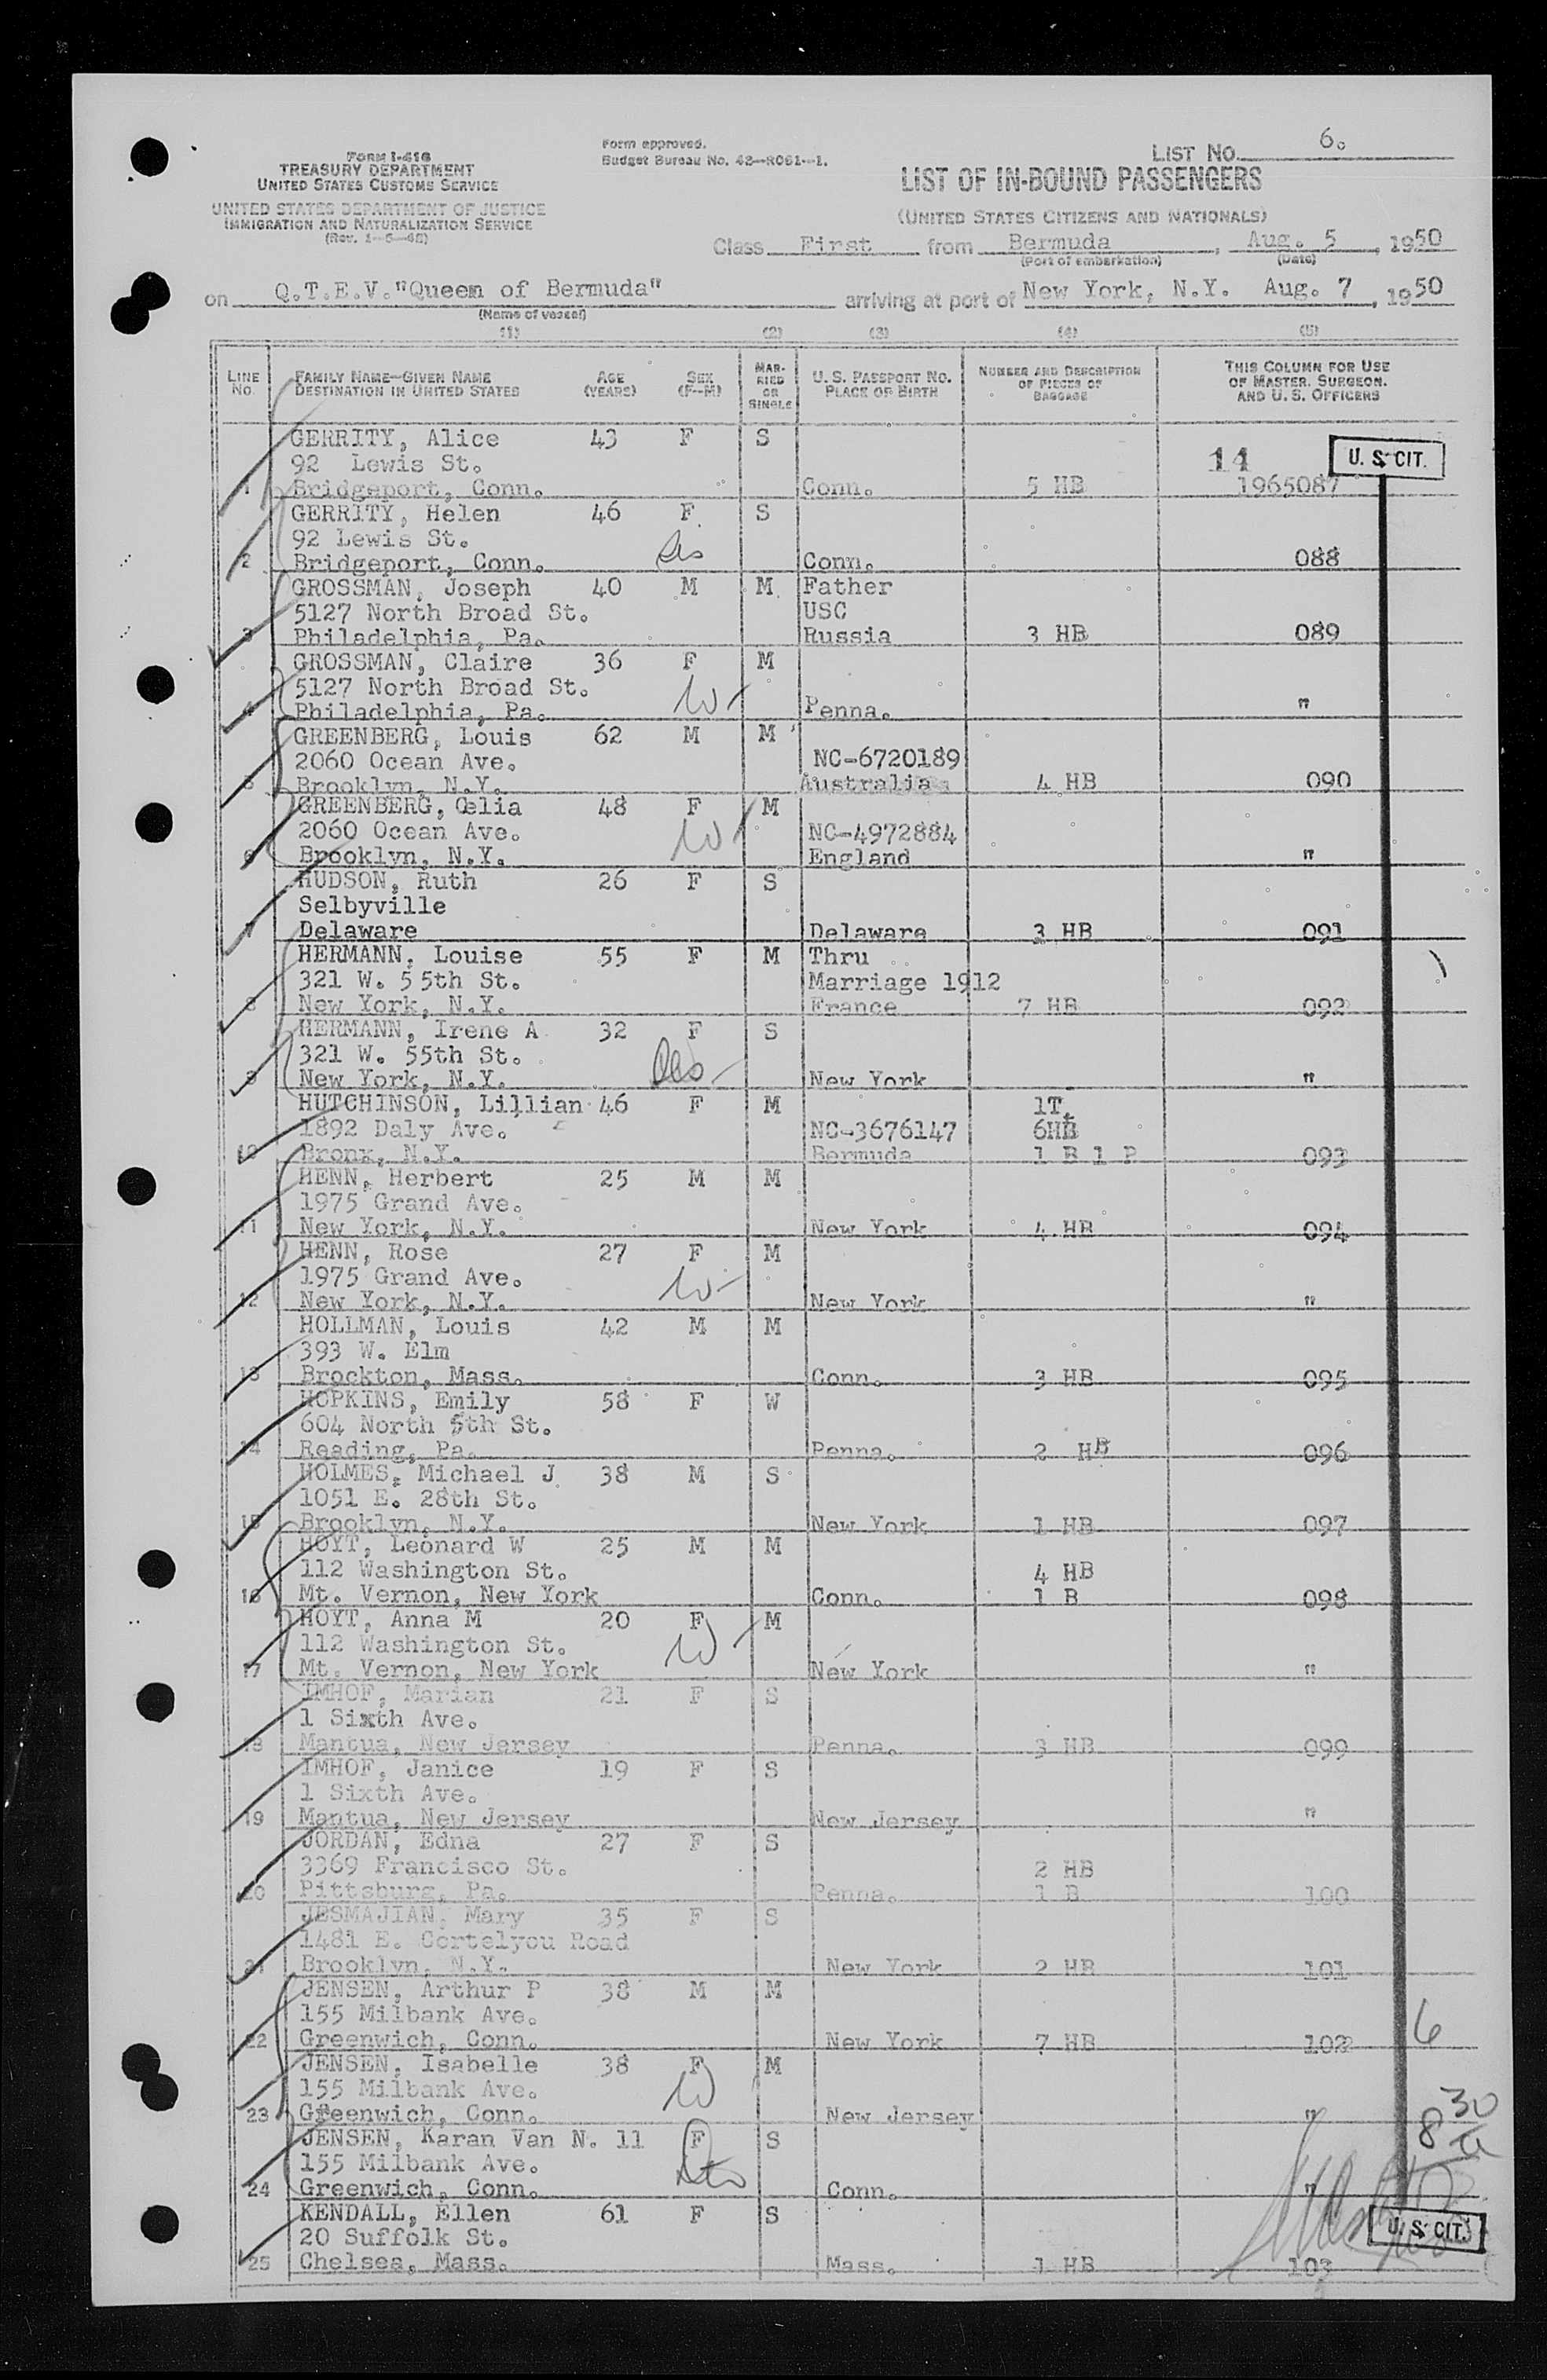 Form I-416
TREASURY DEPARTMENT
UNITED STATES CUSTOMS SERVICE
UNITED STATES DEPARTMENT OF JUSTICE
IMMIGRATION AND NATURALIZATION SERVICE
(Rev. 1-5-48)
Form approved.
Budget Bureau No. 43—R061—1.
LIST No. 6.
LIST OF IN-BOUND PASSENGERS
(UNITED STATES CITIZENS AND NATIONALS)
Class First from Bermuda, Aug. 5, 1950
(Port of embarkation) (Date)
on Q.T.E.V."Queen of Bermuda" arriving at port of New York, N.Y. Aug. 7, 1950
(Name of vessel)
(1) (2) (3) (4) (5)
LINE No. FAMILY NAME—GIVEN NAME DESTINATION IN UNITED STATES AGE (YEARS) SEX (F—M) MARRIED OR SINGLE U. S. PASSPORT NO. PLACE OF BIRTH NUMBER AND DESCRIPTION OF PIECES OF BAGGAGE THIS COLUMN FOR USE OF MASTER, SURGEON, AND U. S. OFFICERS
GERRITY, Alice 43 F S
92 Lewis St. 14 U. S. CIT.
1 Bridgeport, Conn. Conn. 5 HB 1965087
GERRITY, Helen 46 F S
92 Lewis St.
2 Bridgeport, Conn. Conn. 088
GROSSMAN, Joseph 40 M M Father
5127 North Broad St. USC
3 Philadelphia, Pa. Russia 3 HB 089
GROSSMAN, Claire 36 F M
5127 North Broad St.
4 Philadelphia, Pa. Penna. "
GREENBERG, Louis 62 M M
2060 Ocean Ave. NC-6720189
5 Brooklyn, N.Y. Australia 4 HB 090
GREENBERG, Celia 48 F M
2060 Ocean Ave. NC-4972884
6 Brooklyn, N.Y. England "
HUDSON, Ruth 26 F S
Selbyville
7 Delaware Delaware 3 HB 091
HERMANN, Louise 55 F M Thru
321 W. 55th St. Marriage 1912
8 New York, N.Y. France 7 HB 092
HERMANN, Irene A 32 F S
321 W. 55th St.
9 New York, N.Y. New York "
HUTCHINSON, Lillian 46 F M 1T
1892 Daly Ave. NC-3676147 6HB
10 Bronx, N.Y. Bermuda 1 B 1 P 093
HENN, Herbert 25 M M
1975 Grand Ave.
11 New York, N.Y. New York 4 HB 094
HENN, Rose 27 F M
1975 Grand Ave.
12 New York, N.Y. New York "
HOLLMAN, Louis 42 M M
393 W. Elm
13 Brockton, Mass. Conn. 3 HB 095
HOPKINS, Emily 58 F W
604 North 5th St.
14 Reading, Pa. Penna. 2 HB 096
HOLMES, Michael J 38 M S
1051 E. 28th St.
15 Brooklyn, N.Y. New York 1 HB 097
HOYT, Leonard W 25 M M
112 Washington St. 4 HB
16 Mt. Vernon, New York Conn. 1 B 098
HOYT, Anna M 20 F M
112 Washington St.
17 Mt. Vernon, New York New York "
IMHOF, Marian 21 F S
1 Sixth Ave.
18 Mantua, New Jersey Penna. 3 HB 099
IMHOF, Janice 19 F S
1 Sixth Ave.
19 Mantua, New Jersey New Jersey "
JORDAN, Edna 27 F S
3369 Francisco St. 2 HB
20 Pittsburg, Pa. Penna. 1 B 100
JESMAJIAN, Mary 35 F S
1481 E. Cortelyou Road
21 Brooklyn, N.Y. New York 2 HB 101
JENSEN, Arthur P 38 M M
155 Milbank Ave. 6
22 Greenwich, Conn. New York 7 HB 102
JENSEN, Isabelle 38 F M
155 Milbank Ave.
23 Greenwich, Conn. New Jersey " 8 30
JENSEN, Karan Van N. 11 F S
155 Milbank Ave.
24 Greenwich, Conn. Conn. "
KENDALL, Ellen 61 F S
20 Suffolk St. U. S. CIT.
25 Chelsea, Mass. Mass. 1 HB 103